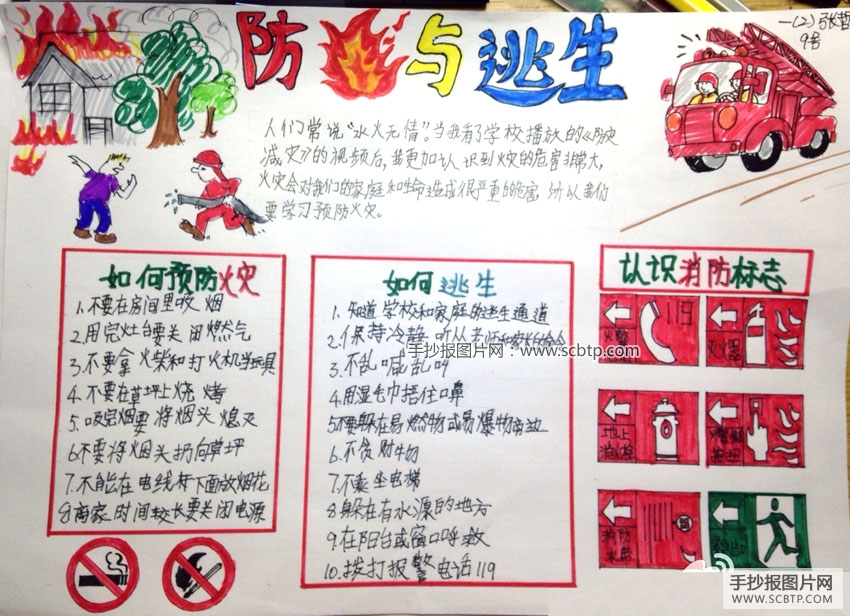 防火与逃生
一(2)张哲
9号
人们常说“水火无情”。当我看了学校播放的《防灾
减灾》的视频后,我更加认识到火灾的危害非常大,
火灾会对我们的家庭和生命造成很严重的危害,所以我们
要学习预防火灾。
如何预防火灾
1.不要在房间里吸烟
2.用完灶台要关闭燃气
3.不要拿火柴和打火机当玩具
4.不要在草坪上烧烤
5.吸完烟要将烟头熄灭
6.不要将烟头扔向草坪
7.不能在电线杆下面放烟花
8.离家时间较长要关闭电源
如何逃生
1.知道学校和家庭的逃生通道
2.保持冷静听从老师和家长的命令
3.不乱喊乱叫
4.用湿毛巾捂住口鼻
5.不要躲在易燃物或易爆物旁边
6.不贪财物
7.不乘坐电梯
8.躲在有水源的地方
9.在阳台或窗口呼救
10.拨打报警电话119
认识消防标志
火警
119
灭火器
地上
消火栓
消防
手抄报图片网:www.scbtp.com
手抄报图片网
WWW.SCBTP.COM